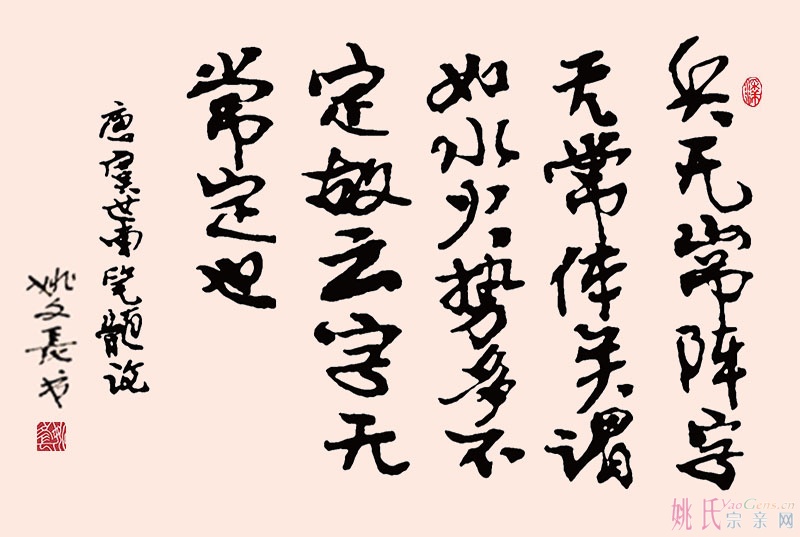 兵无常阵字
无常体矣谓
如水火势多不
定故云字无
常定也
唐虞世南笔髓
姚文長书
姚氏宗亲网
YaoGens.cn